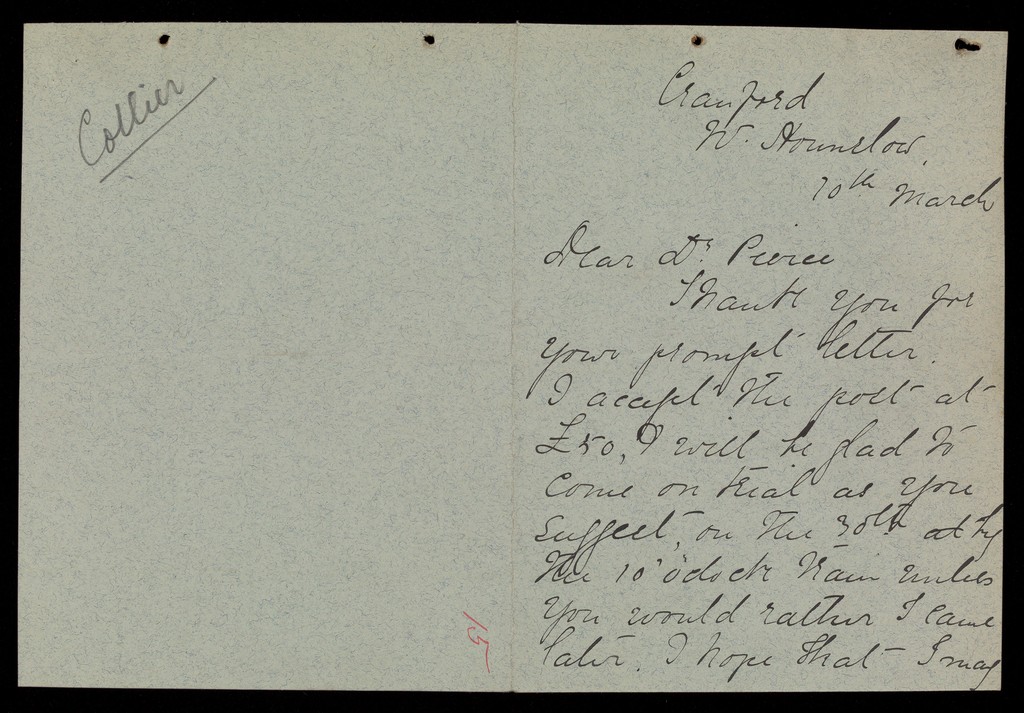 Collier
Cranford
W. Hounslow.
10th March
Dear Dr Pierce
Thank you for
your prompt letter.
I accept the post at
£50, & I will be glad to
come on trial as you
suggest, on the 30th by
the 10 o'clock train unless
you would rather I came
later. I hope that I may
15